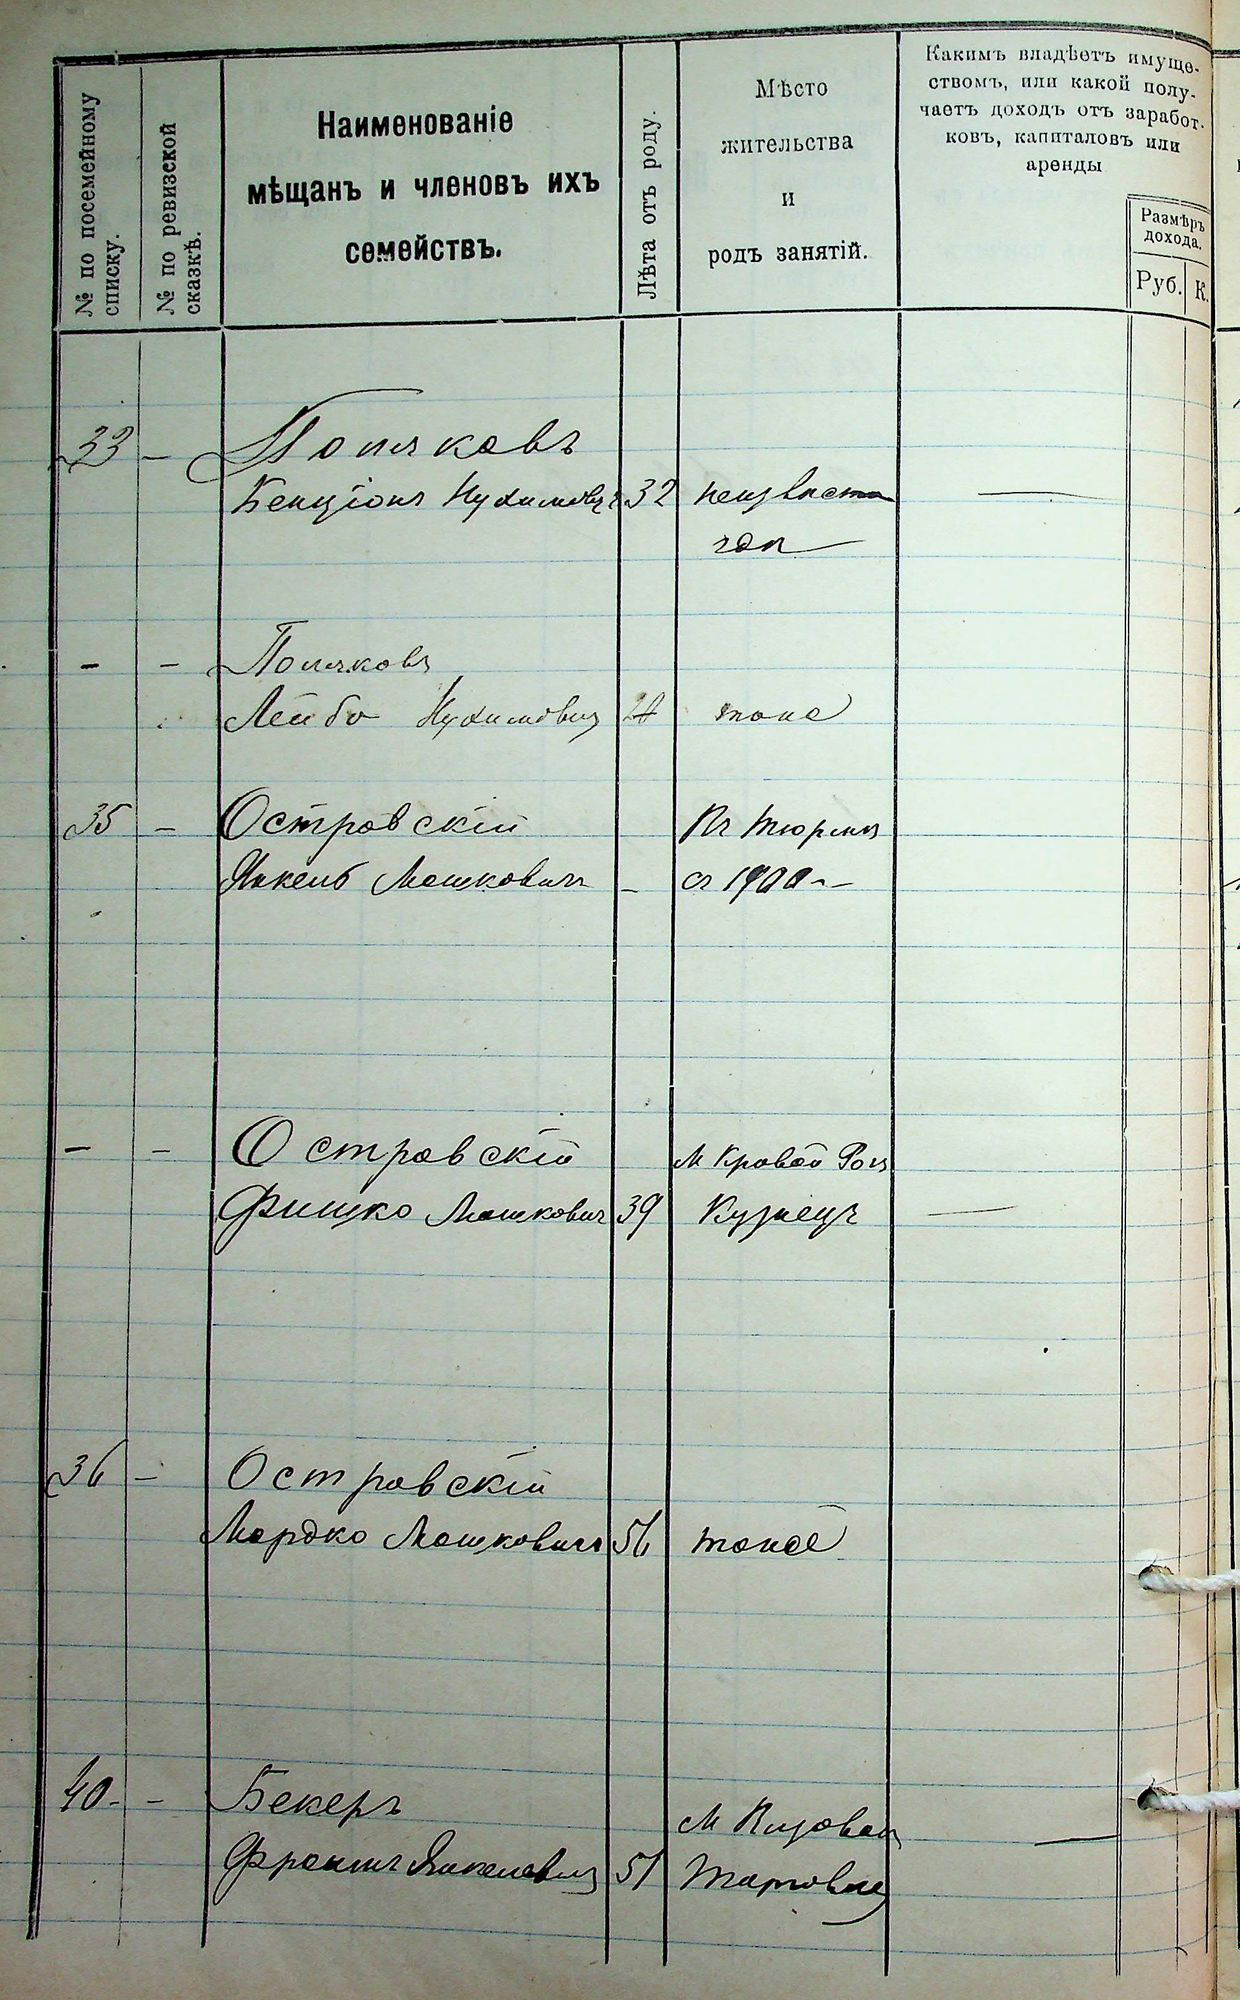 № по посемейному
списку.
№ по ревизской
сказкѣ.
Наименованіе
мѣщанъ и членовъ ихъ
семействъ.
Лѣта отъ роду.
Мѣсто
жительства
и
родъ занятій.
Какимъ владѣетъ имуще-
ствомъ, или какой полу-
чаетъ доходъ отъ заработ-
ковъ, капиталовъ или
аренды
Размѣръ
дохода.
Руб. К.
33 — Поляковъ
Бенціонъ Нухимовъ 32 неизвѣстно
гдѣ —
— — Поляковъ
Лейба Нухимовичъ тоже
35 — Островскій Въ тюрьмѣ
Янкель Мошковичъ — съ 1900 —
— — Островскій М Кривой Рогъ
Фишко Мошковичъ 39 Кузнецъ —
36 — Островскій
Мордко Мошковичъ 56 тоже
40 — — Бекеръ М
Янкелевичъ 51 Торговля —